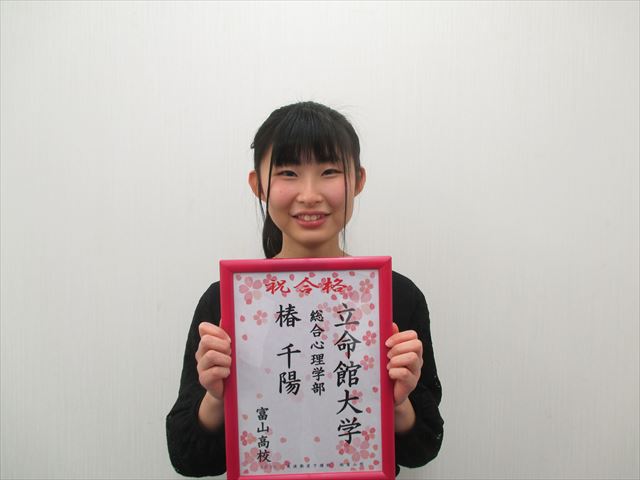 祝合格
立命館大学
総合心理学部
椿 千陽
富山高校